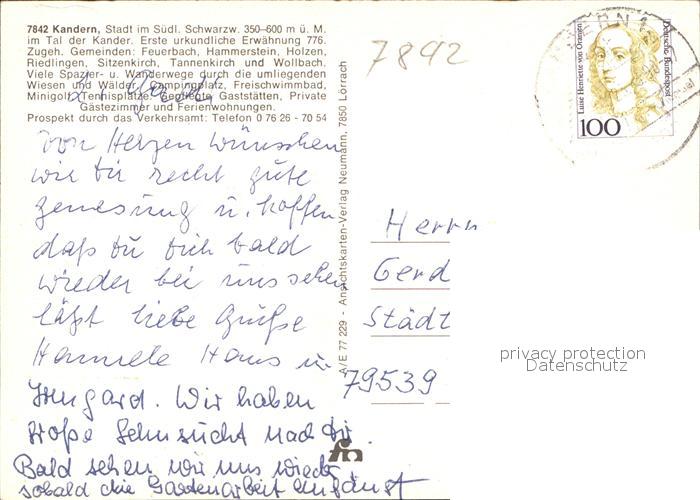 7842 Kandern, Stadt im Südl. Schwarzw. 350-600 m ü. M.
im Tal der Kander. Erste urkundliche Erwähnung 776.
Zugeh. Gemeinden: Feuerbach, Hammerstein, Holzen,
Riedlingen, Sitzenkirch, Tannenkirch und Wollbach.
Viele Spazier- u. Wanderwege durch die umliegenden
Wiesen und Wälder. Campingplatz, Freischwimmbad,
Minigolf, Tennisplätze. Gepflegte Gaststätten, Private
Gästezimmer und Ferienwohnungen.
Prospekt durch das Verkehrsamt: Telefon 0 76 26 - 70 54
Von Herzen wünschen
wir Dir recht gute
Genesung u. hoffen
daß Du Dich bald
wieder bei uns sehen
läßt liebe Grüße
Hannele Hans u.
Irmgard. Wir haben
große Sehnsucht nach Dir.
Bald sehen wir uns wieder
sobald die Gartenarbeit anfängt
A/E 77 229 - Ansichtskarten-Verlag Neumann, 7850 Lörrach
7892
Luise Henriette von Oranien
Deutsche Bundespost
100
Herrn
Gerd
Städt
79539
privacy protection
Datenschutz